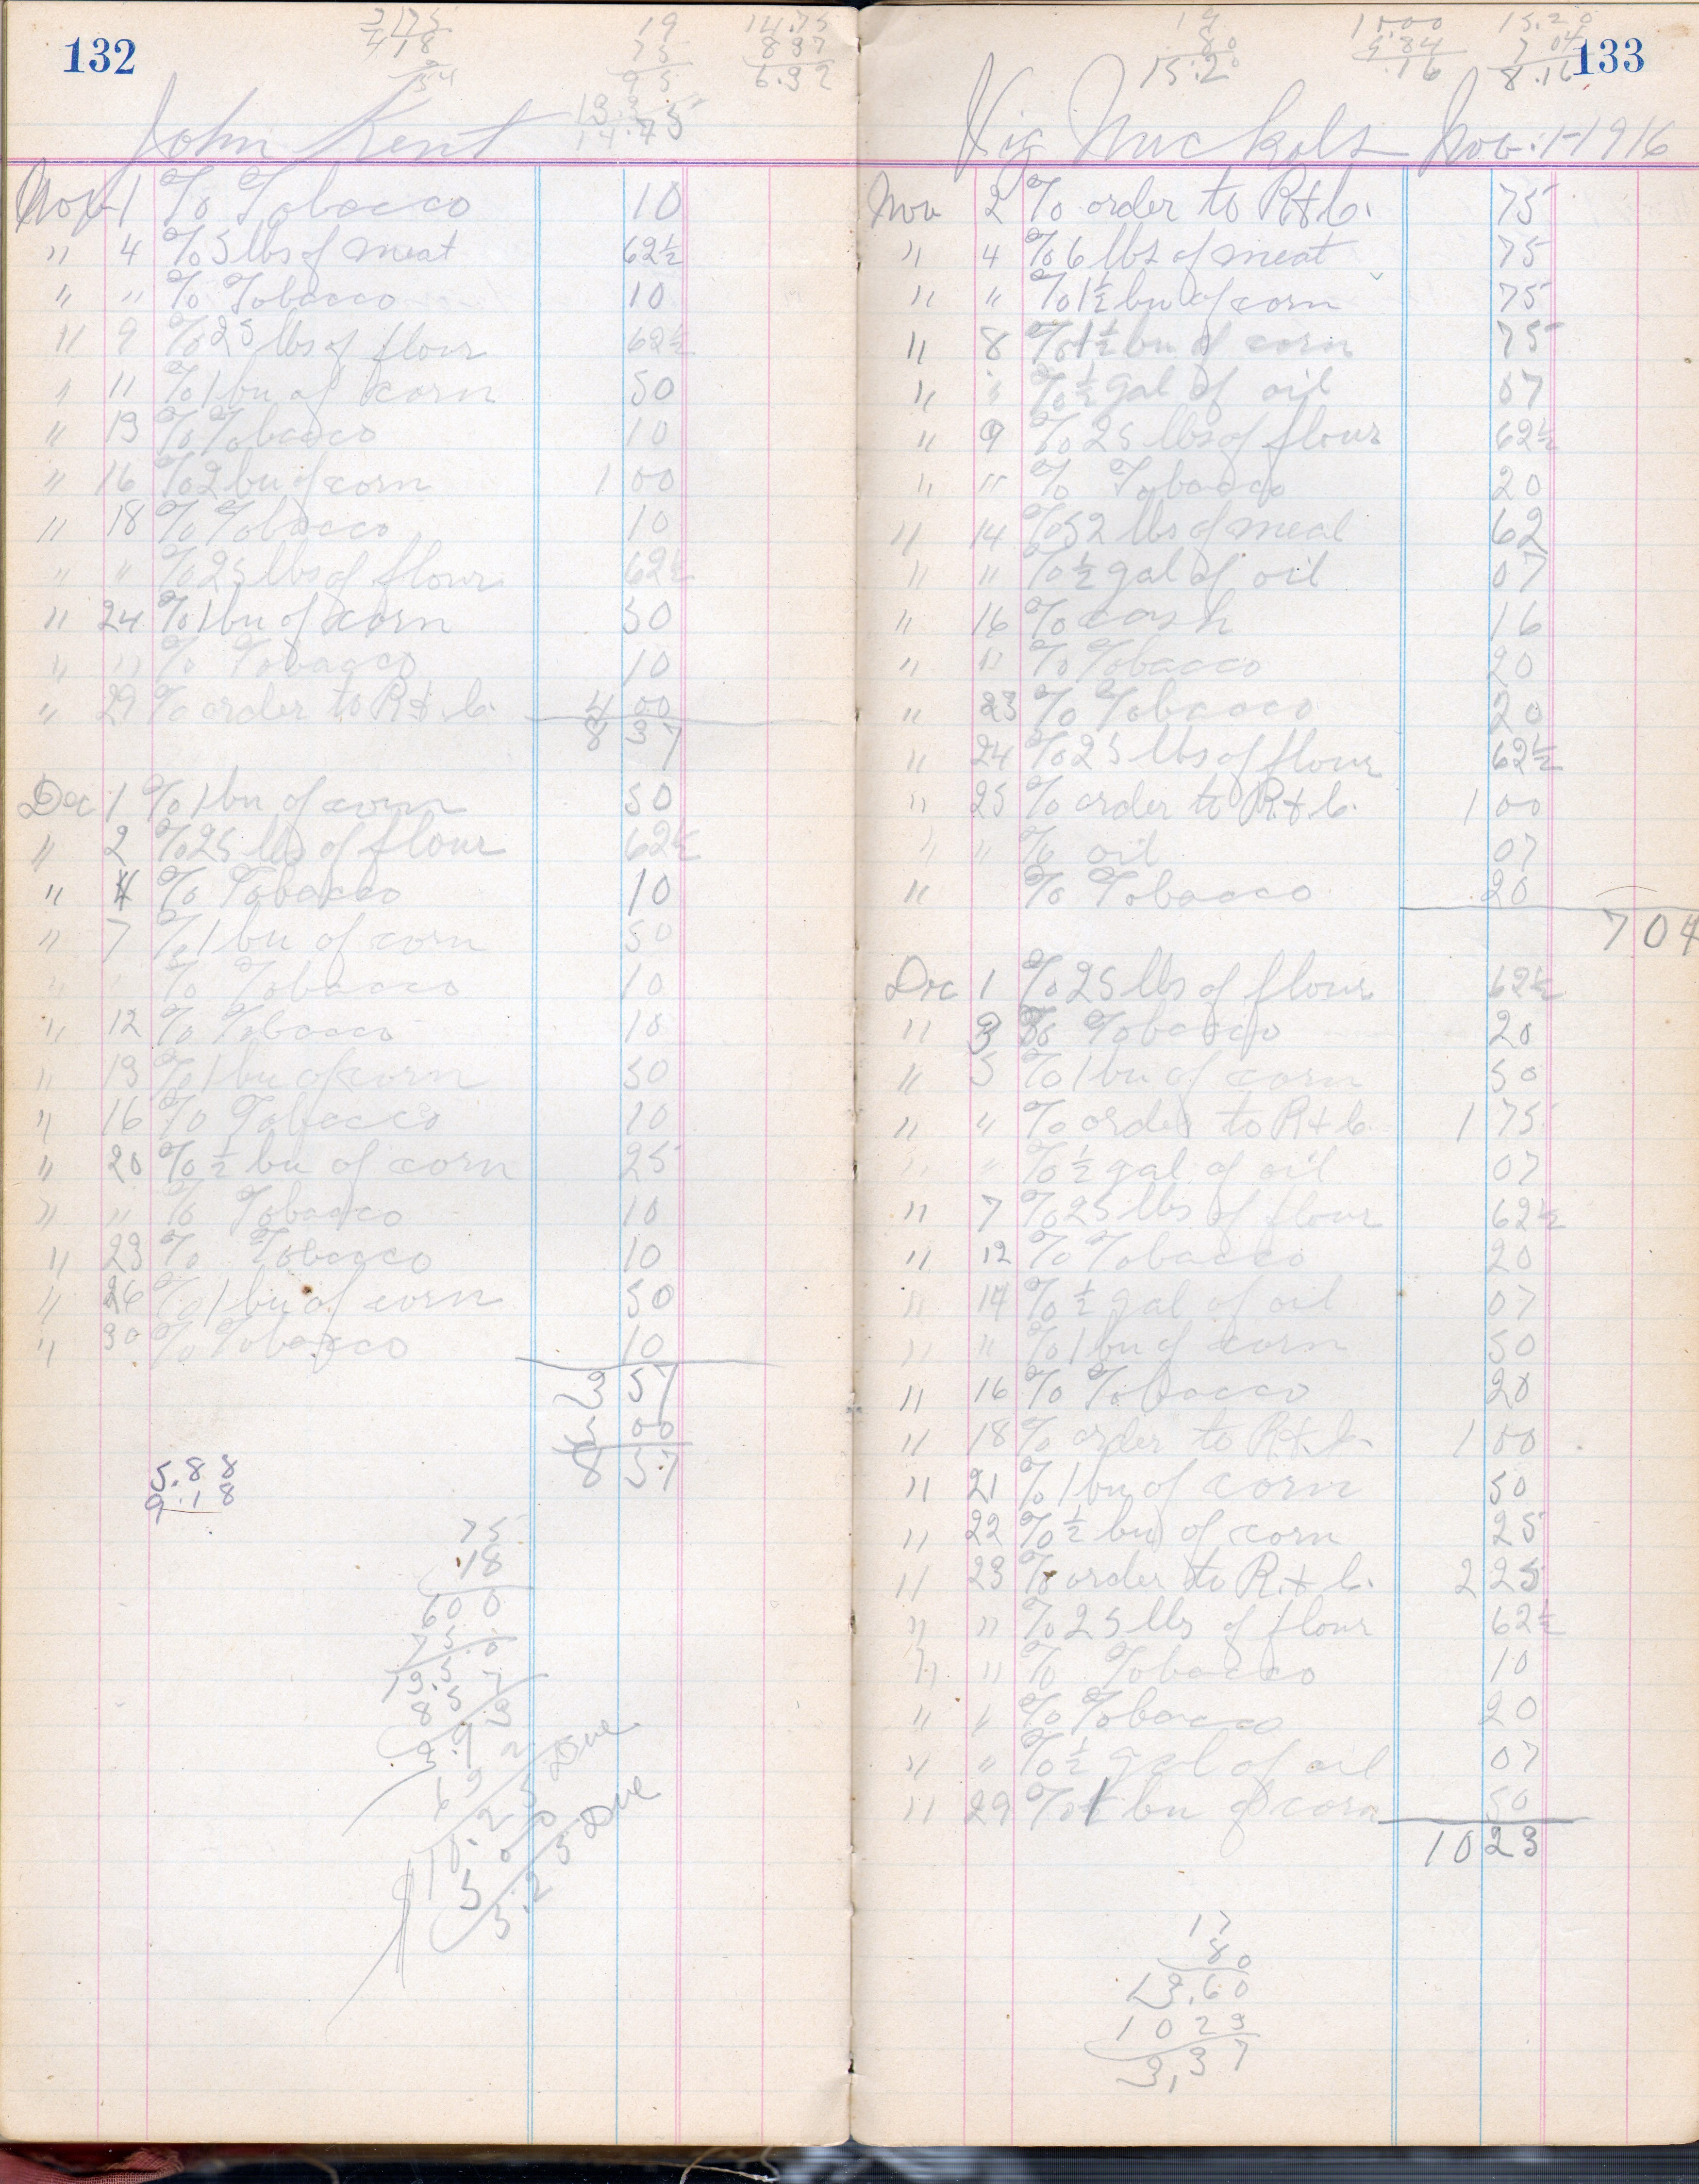 132
3 175
4 18
54
19
75
95
133
14.75
14.75
8 37
6.32
John Kent
Nov 1 % Tobacco 10
" 4 % 5 lbs of meat 62½
" " % Tobacco 10
" 9 % 25 lbs of flour 62½
" 11 % 1 bu of corn 50
" 13 % Tobacco 10
" 16 % 2 bu of corn 1 00
" 18 % Tobacco 10
" " % 25 lbs of flour 62½
" 24 % 1 bu of corn 50
" " % Tobacco 10
" 29 % order to R & C. 4 00
8 37
Dec 1 % 1 bu of corn 50
" 2 % 25 lbs of flour 62½
" 4 % Tobacco 10
" 7 % 1 bu of corn 50
" " % Tobacco 10
" 12 % Tobacco 10
" 13 % 1 bu of corn 50
" 16 % Tobacco 10
" 20 % ½ bu of corn 25
" " % Tobacco 10
" 23 % Tobacco 10
" 26 % 1 bu of corn 50
" 30 % Tobacco 10
3 57
5 00
8 57
5.88
9.18
75
.18
600
75 0
13.5 0
8 5 7
3.9 3
6 3 2 Due
10.2 5
5 0 0
5.2 5 Due
133
19
80
15.20
15.00
9.84
.16
15.20
7 04
8.16
Vig Nuckols Nov. 1-1916
Nov 2 % order to R & C. 75
" 4 % 6 lbs of meat 75
" " % 1½ bu of corn 75
" 8 % 1½ bu of corn 75
" " % ½ gal of oil 07
" 9 % 25 lbs of flour 62½
" " % Tobacco 20
" 14 % 52 lbs of meal 62
" " % ½ gal of oil 07
" 16 % cash 16
" " % Tobacco 20
" 23 % Tobacco 20
" 24 % 25 lbs of flour 62½
" 25 % order to R & C. 1 00
" " % oil 07
" % Tobacco 20
7 04
Dec 1 % 25 lbs of flour 62½
" 3 % Tobacco 20
" 5 % 1 bu of corn 50
" " % order to R & C 1 75
" " % ½ gal of oil 07
" 7 % 25 lbs of flour 62½
" 12 % Tobacco 20
" 14 % ½ gal of oil 07
" " % 1 bu of corn 50
" 16 % Tobacco 20
" 18 % order to R & C. 1 00
" 21 % 1 bu of corn 50
" 22 % ½ bu of corn 25
" 23 % order to R. & C. 2 25
" " % 25 lbs of flour 62½
" " % Tobacco 10
" " % Tobacco 20
" " % ½ gal of oil 07
" 29 % 1 bu of corn 50
10 23
17
80
13.60
10 23
3.37